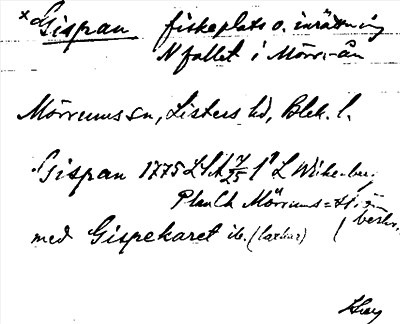 × Gispan fiskeplats o. inrättning
N fallet i Mörrumsån
Mörrums sn, Listers hd, Blek. l.
Gispan 1775 LSA 1 L Wikenberg
Pl Ch Mörrums=Ström
med Gispekaret ib. (laxkar) beskr.